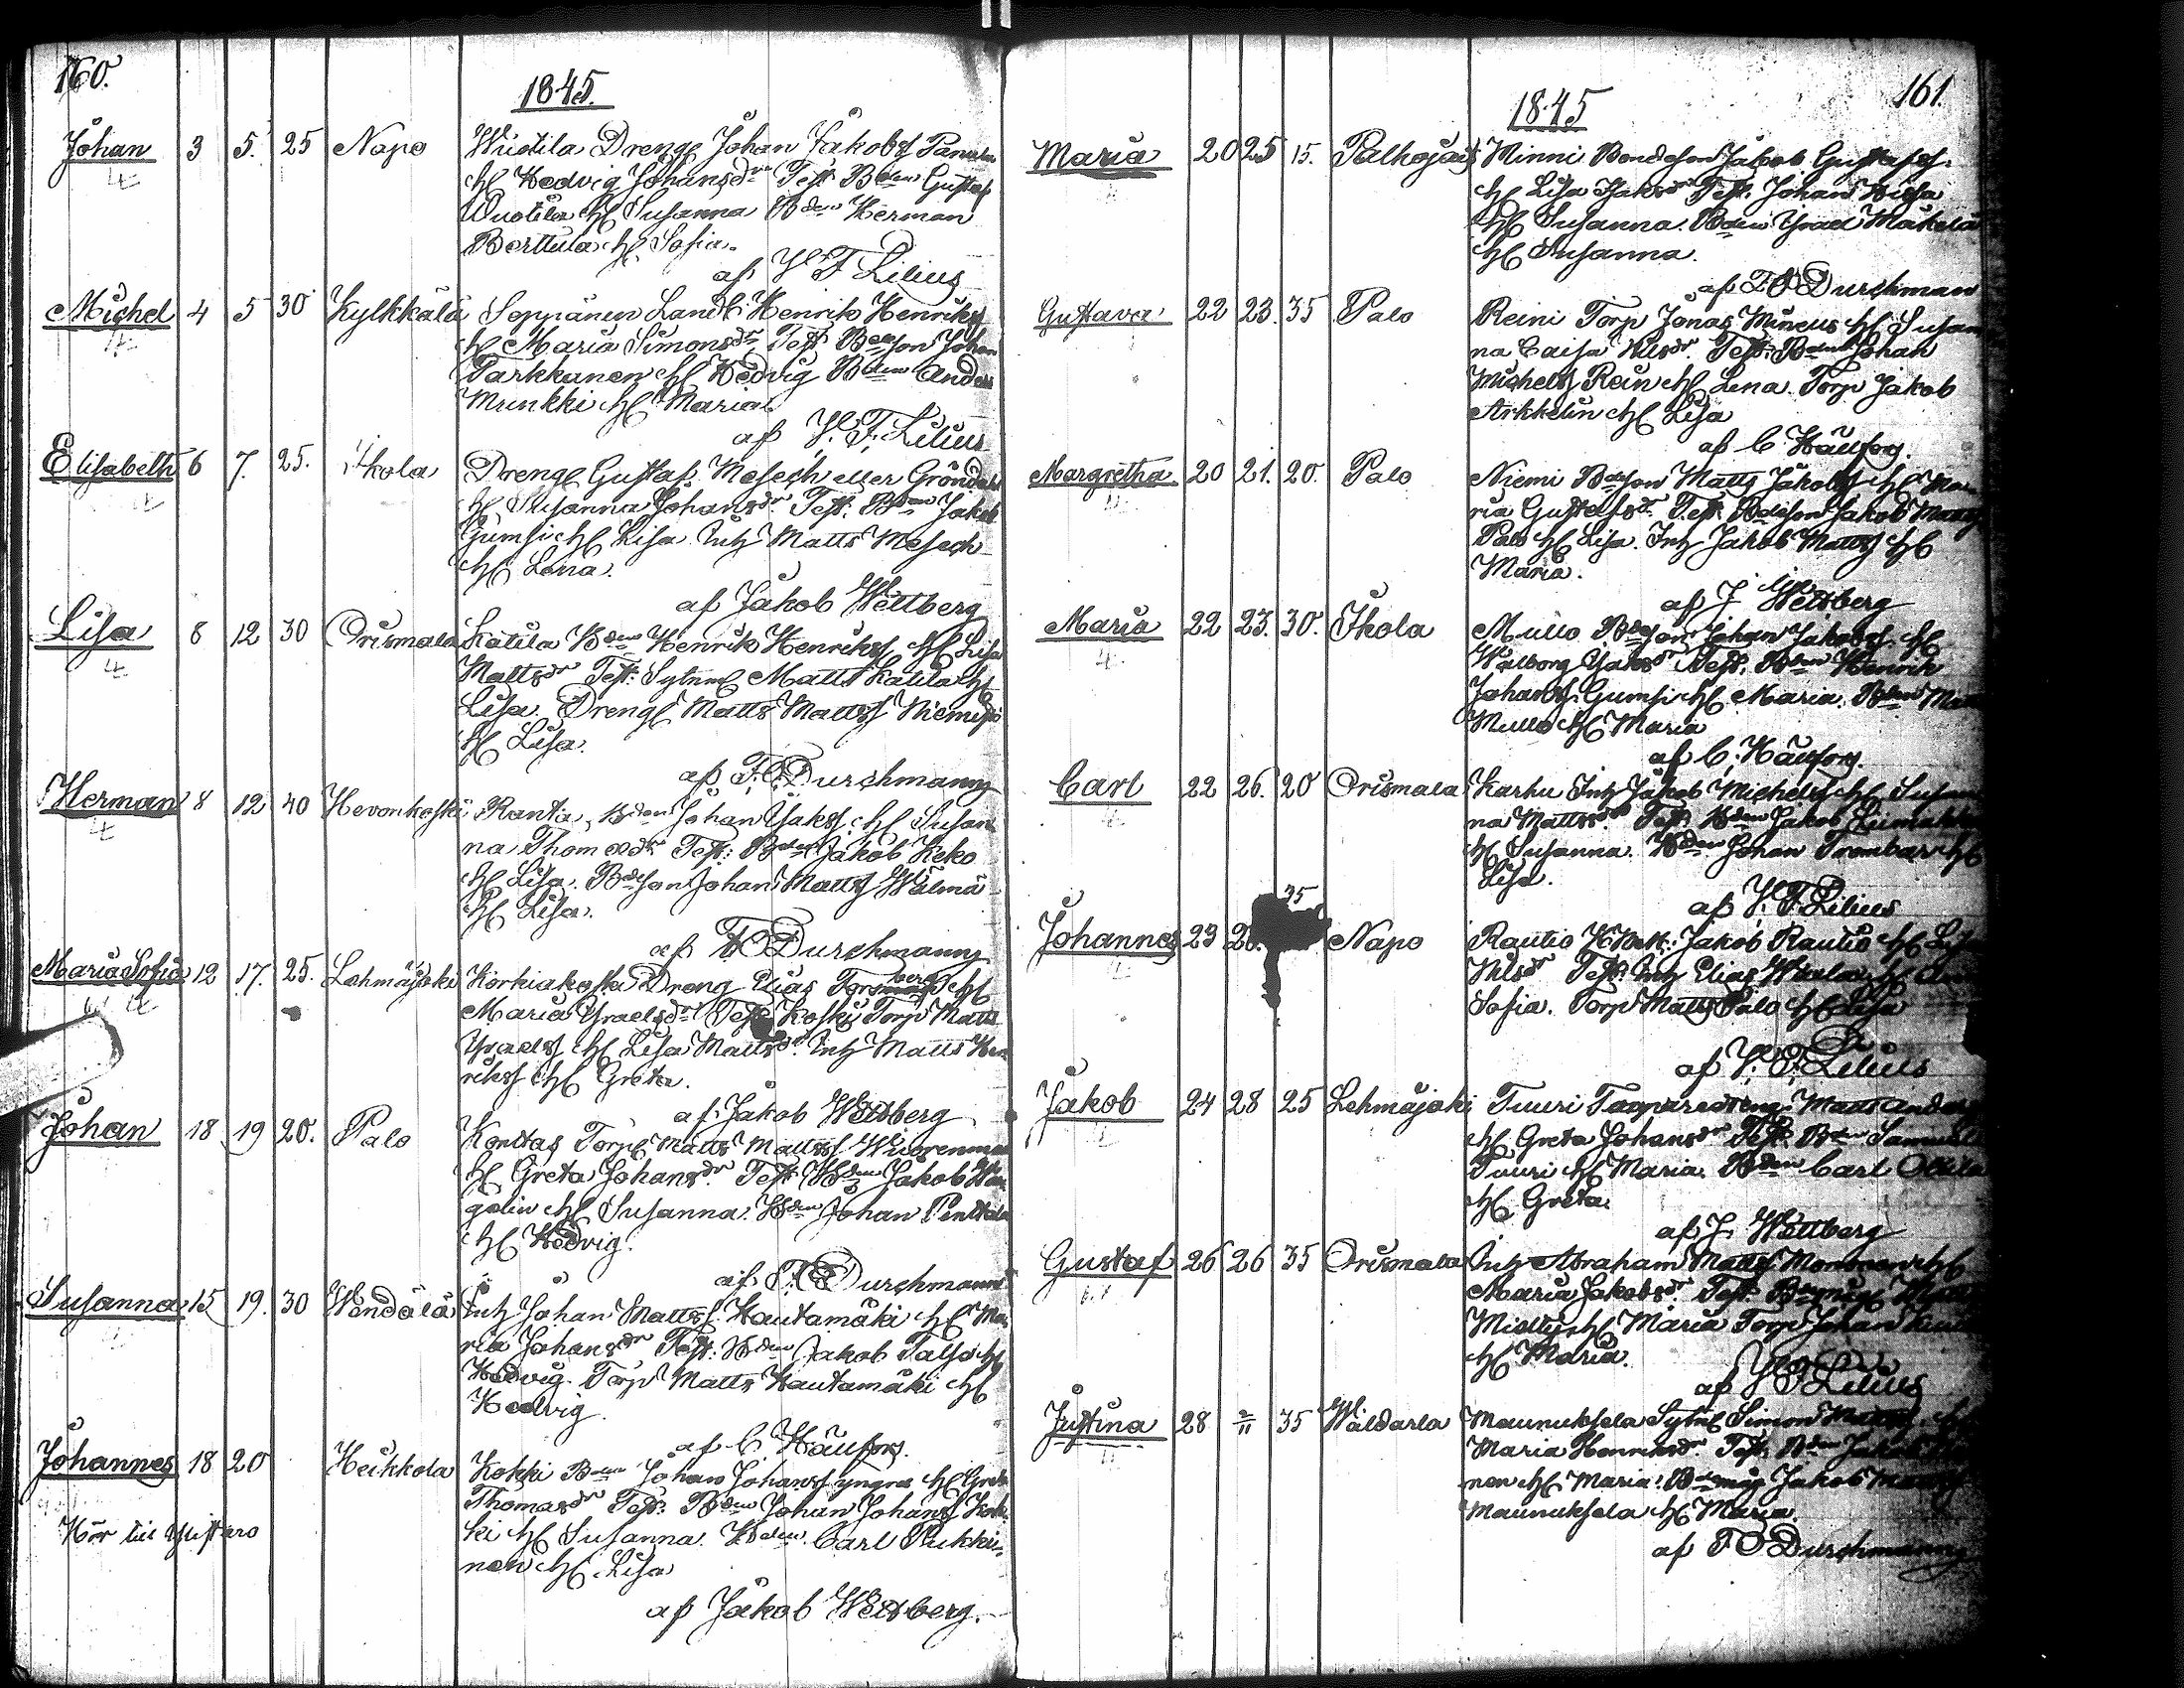 160.
1845.
Johan 3 5. 25 Napo Wuotila Drenge Johan Jakobss
H Hedvig Johansdr Test. Bden Gustaf
Wuotila H Susanna Bden Herman
Berttula H Sofia.
af J F Lilius
Michel 4 5 30 Kylkkälä Seppänen Landb Henrik Henrikss
H Maria Simonsdr Test Bdeson Johan
Tarkkanen H Hedvig Bden Anders
Munkki H Maria
af J. F. Lilius
Elisabeth 6 7. 25. Ikola Dreng Gustaf Mesech eller Gröndahl
H Susanna Johansdr Test. Bden Jakob
Gumsi H Lisa Inh Matts Mesech
H Lena.
af Jakob Wettberg
Lisa 8 12 30 Orismala Katila Bden Henrik Henrikss H Lisa
Mattsdr Test: Sytnin Matts Katila H
Lisa Drengl Matts Mattss Niemisjö
H Lisa.
af F. O. Durchmann
Herman 8 12 40 Hevonkoski Ranta Bden Johan Isakss H Susan
na Thomasdr Test: Bden Jakob Keko
H Lisa. Bdeson Johan Mattss Wälmä
H Lisa.
af F O Durchmann
Maria Sofia 12 17. 25. Lehmäjoki Korkiakoski Dreng Elias Forsberg H
Maria Israelsdr Test Koski Torp Matts
Israelss H Lisa Mattsdr. Inh Matts Hen
rikss H Greta.
af Jakob Wettberg
Johan 18 19 20. Palo Konttas Torp Matts Mattss
H Greta Johansdr. Test Bden Jakob
galin H Susanna. Bden Johan Penttala
H Hedvig.
af F. O Durchmann
Susanna 15 19. 30 Wendälä Inh Johan Mattss Hautamäki H Ma
ria Johansdr Test: Bden Jakob Talso H
Hedvig. Torp Matts Hautamäki H
Hedvig.
af C. Häufors.
Johannes 18 20 Heikkola Kokki Bden Johan Johanss yngre H Greta
Thomasdr Test. Bden Johan Johanss Kok
ki H Susanna. Bden Carl Pukki
nen H Lisa
Hör till Ylistaro
af Jakob Wettberg.
161.
1845
Maria 20 25 15. Palhojais Minni Bondeson Jakob Gustafss.
H Lisa Isaksdr Test. Johan Hissa
H Susanna. Bden Israel Mäkelä
H Susanna.
af F O Durchman
Gustava 22 23. 35 Palo Reini Torp Jonas H Susan
na Caisa Nilsdr. Test: Bden Johan
Michelss Rein H Lena. Torp Jakob
Arkkelin H Lisa
af C. Häufors.
Margretha 20 21. 20. Palo Niemi Bdeson Matts Jakobss H Ma
ria Gustafsdr. Test Bdeson Jakob Mattss
Palo H Lisa. Inh Jakob Mattss H
Maria.
af J Wettberg
Maria 22 23. 30. Ikola Mullo Bdeson Johan Jakobss H
Walborg Isaksdr Test. Bden Henrik
Johanss Gumsi H Maria. Bden Matts
Mullo H Maria
af C. Häufors.
Carl 22 26. 20 Orismala Karhu Inh Jakob Michelss H Susan
na Mattsdr. Test. Bden Jakob
H Susanna. Bden Johan H
Lisa.
af J. F. Lilius
Johannes 23 26. 35 Napo Rautio Jakob Rautio H Lisa
Nilsdr Test. Inh Elias H
Sofia. Torp Matts Palo H Lisa
af J. F. Lilius
Jakob 24 28 25 Lehmäjoki Tuuri Torparedreng Matts Anderss
H Greta Johansdr Test. Bden Samuel
Tuuri H Maria. Bden Carl Ollila
H Greta.
af J. Wettberg
Gustaf 26 26 35 Orismala Inh Abraham Mattss H
Maria Jakobsdr. Test.
H Maria Torp Johan
H Maria.
af J F Lilius
Justina 28 2/11 35 Waldarla Maunuksela Sytn Simon Mattss
Maria Henriksdr. Test. Bden Jakob
nen H Maria. Bdemåg Jakob
Maunuksela H Maria.
af F O Durchmann